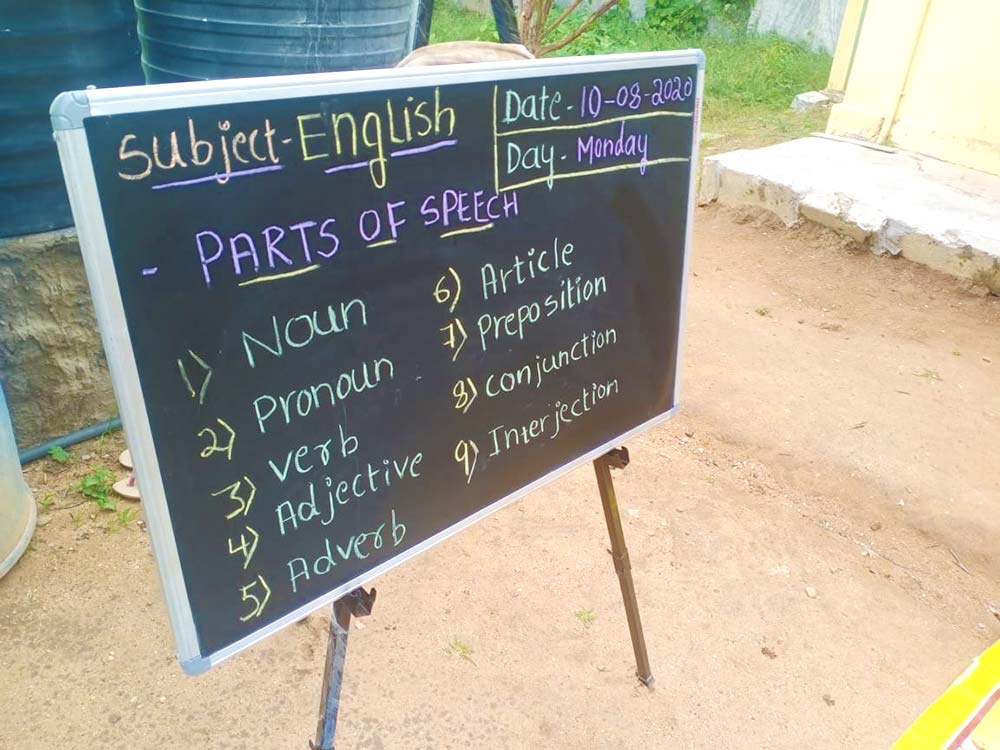 Subject-English
Date-10-08-2020
Day-Monday
- PARTS OF SPEECH
1) Noun
2) Pronoun
3) verb
4) Adjective
5) Adverb
6) Article
7) Preposition
8) conjunction
9) Interjection